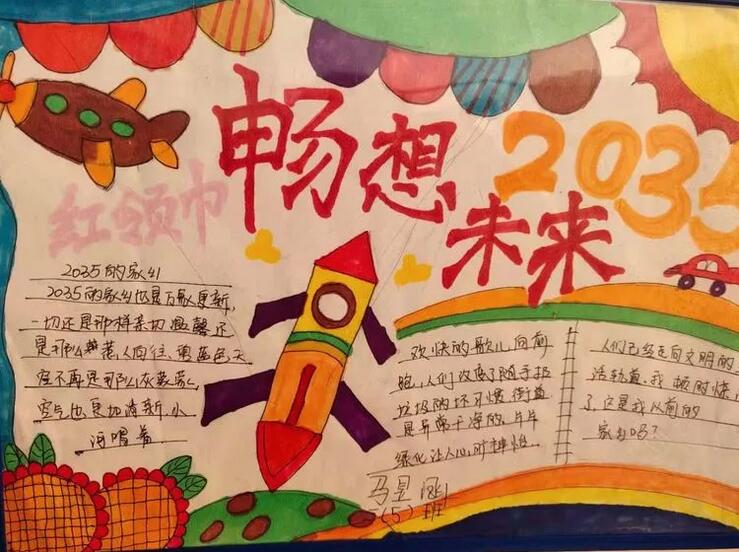 畅想
2035
未来
红领巾
2035的家乡
2035的家乡也是万象更新,
一切还是那样亲切温馨还
是那么 人向往,蔚蓝色天
空不再是那么灰蒙蒙,
空气也更加清新,小
河唱着
欢快的歌儿向前
跑,人们改变了随手扔
垃圾的坏习惯街道
是异常干净的,片片
绿化让人心旷神怡。
人们已经走向文明的
活轨道,我 惊
了,这是我从前的
家乡吗?
马昱
(5)班